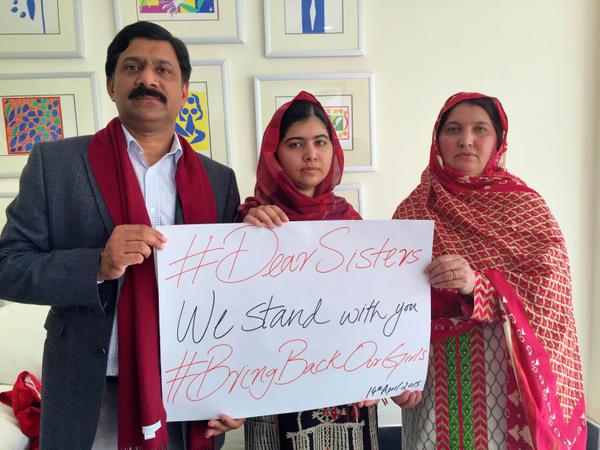 #DearSisters
We stand with you
#BringBackOurGirls
14th April 2015